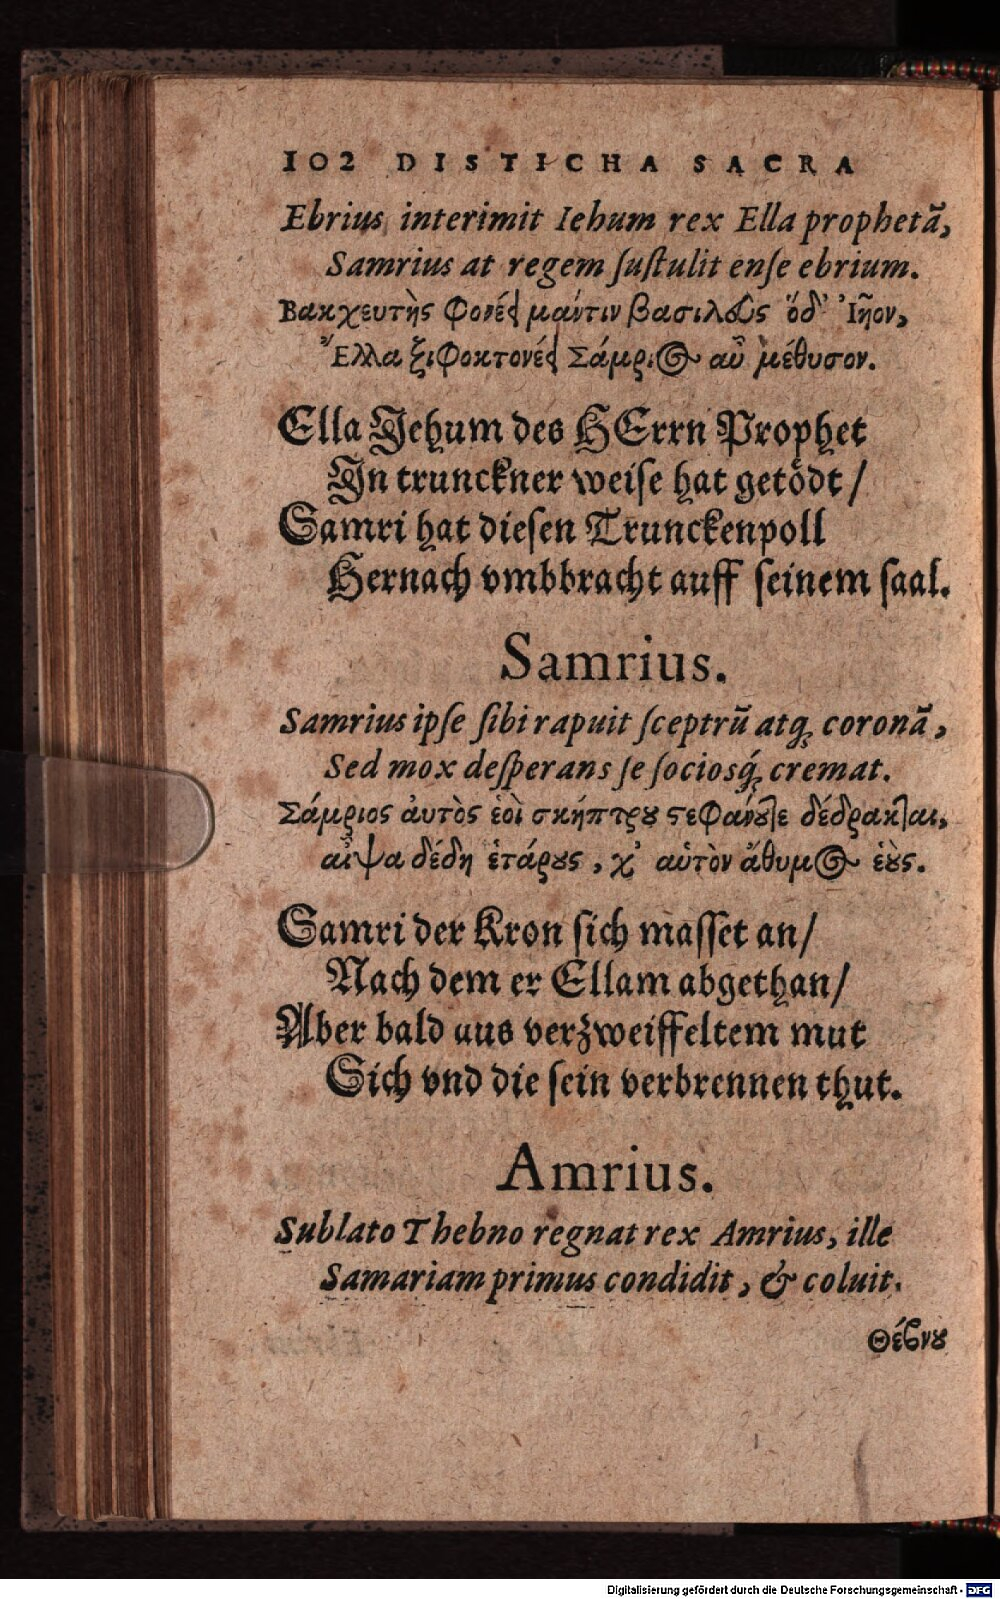 102 DISTICHA SACRA
Ebrius interimit Iehum rex Ella prophetã,
Samrius at regem ſuſtulit enſe ebrium.
Βακχευτὴς φονέει μαύτιν βασιλεὺς ὅδ' Ἰῆον,
Ἔλλα ξιφοκτονέει Σάμριος αὖ μέθυσον.
Ella Jehum des HErrn Prophet
Jn trunckner weiſe hat getödt /
Samri hat dieſen Trunckenpoll
Hernach vmbbracht auff ſeinem ſaal.
Samrius.
Samrius ipſe ſibi rapuit ſceptrũ atq; coronã,
Sed mox deſperans ſe ſocioſq́; cremat.
Σάμριος ἀυτὸς ἑοῖ σκήπτρȣ ϛεφάνȣτε δέδρακται,
αἶψα δέδη ἑτάρȣς, χ' αὑτὸν ἄθυμος ἑȣ̀ς.
Samri der Kron ſich maſſet an/
Nach dem er Ellam abgethan/
Aber bald aus verzweiffeltem mut
Sich vnd die ſein verbrennen thut.
Amrius.
Sublato Thebno regnat rex Amrius, ille
Samariam primus condidit, & coluit.
Θέβνȣ
Digitalisierung gefördert durch die Deutsche Forschungsgemeinschaft - DFG